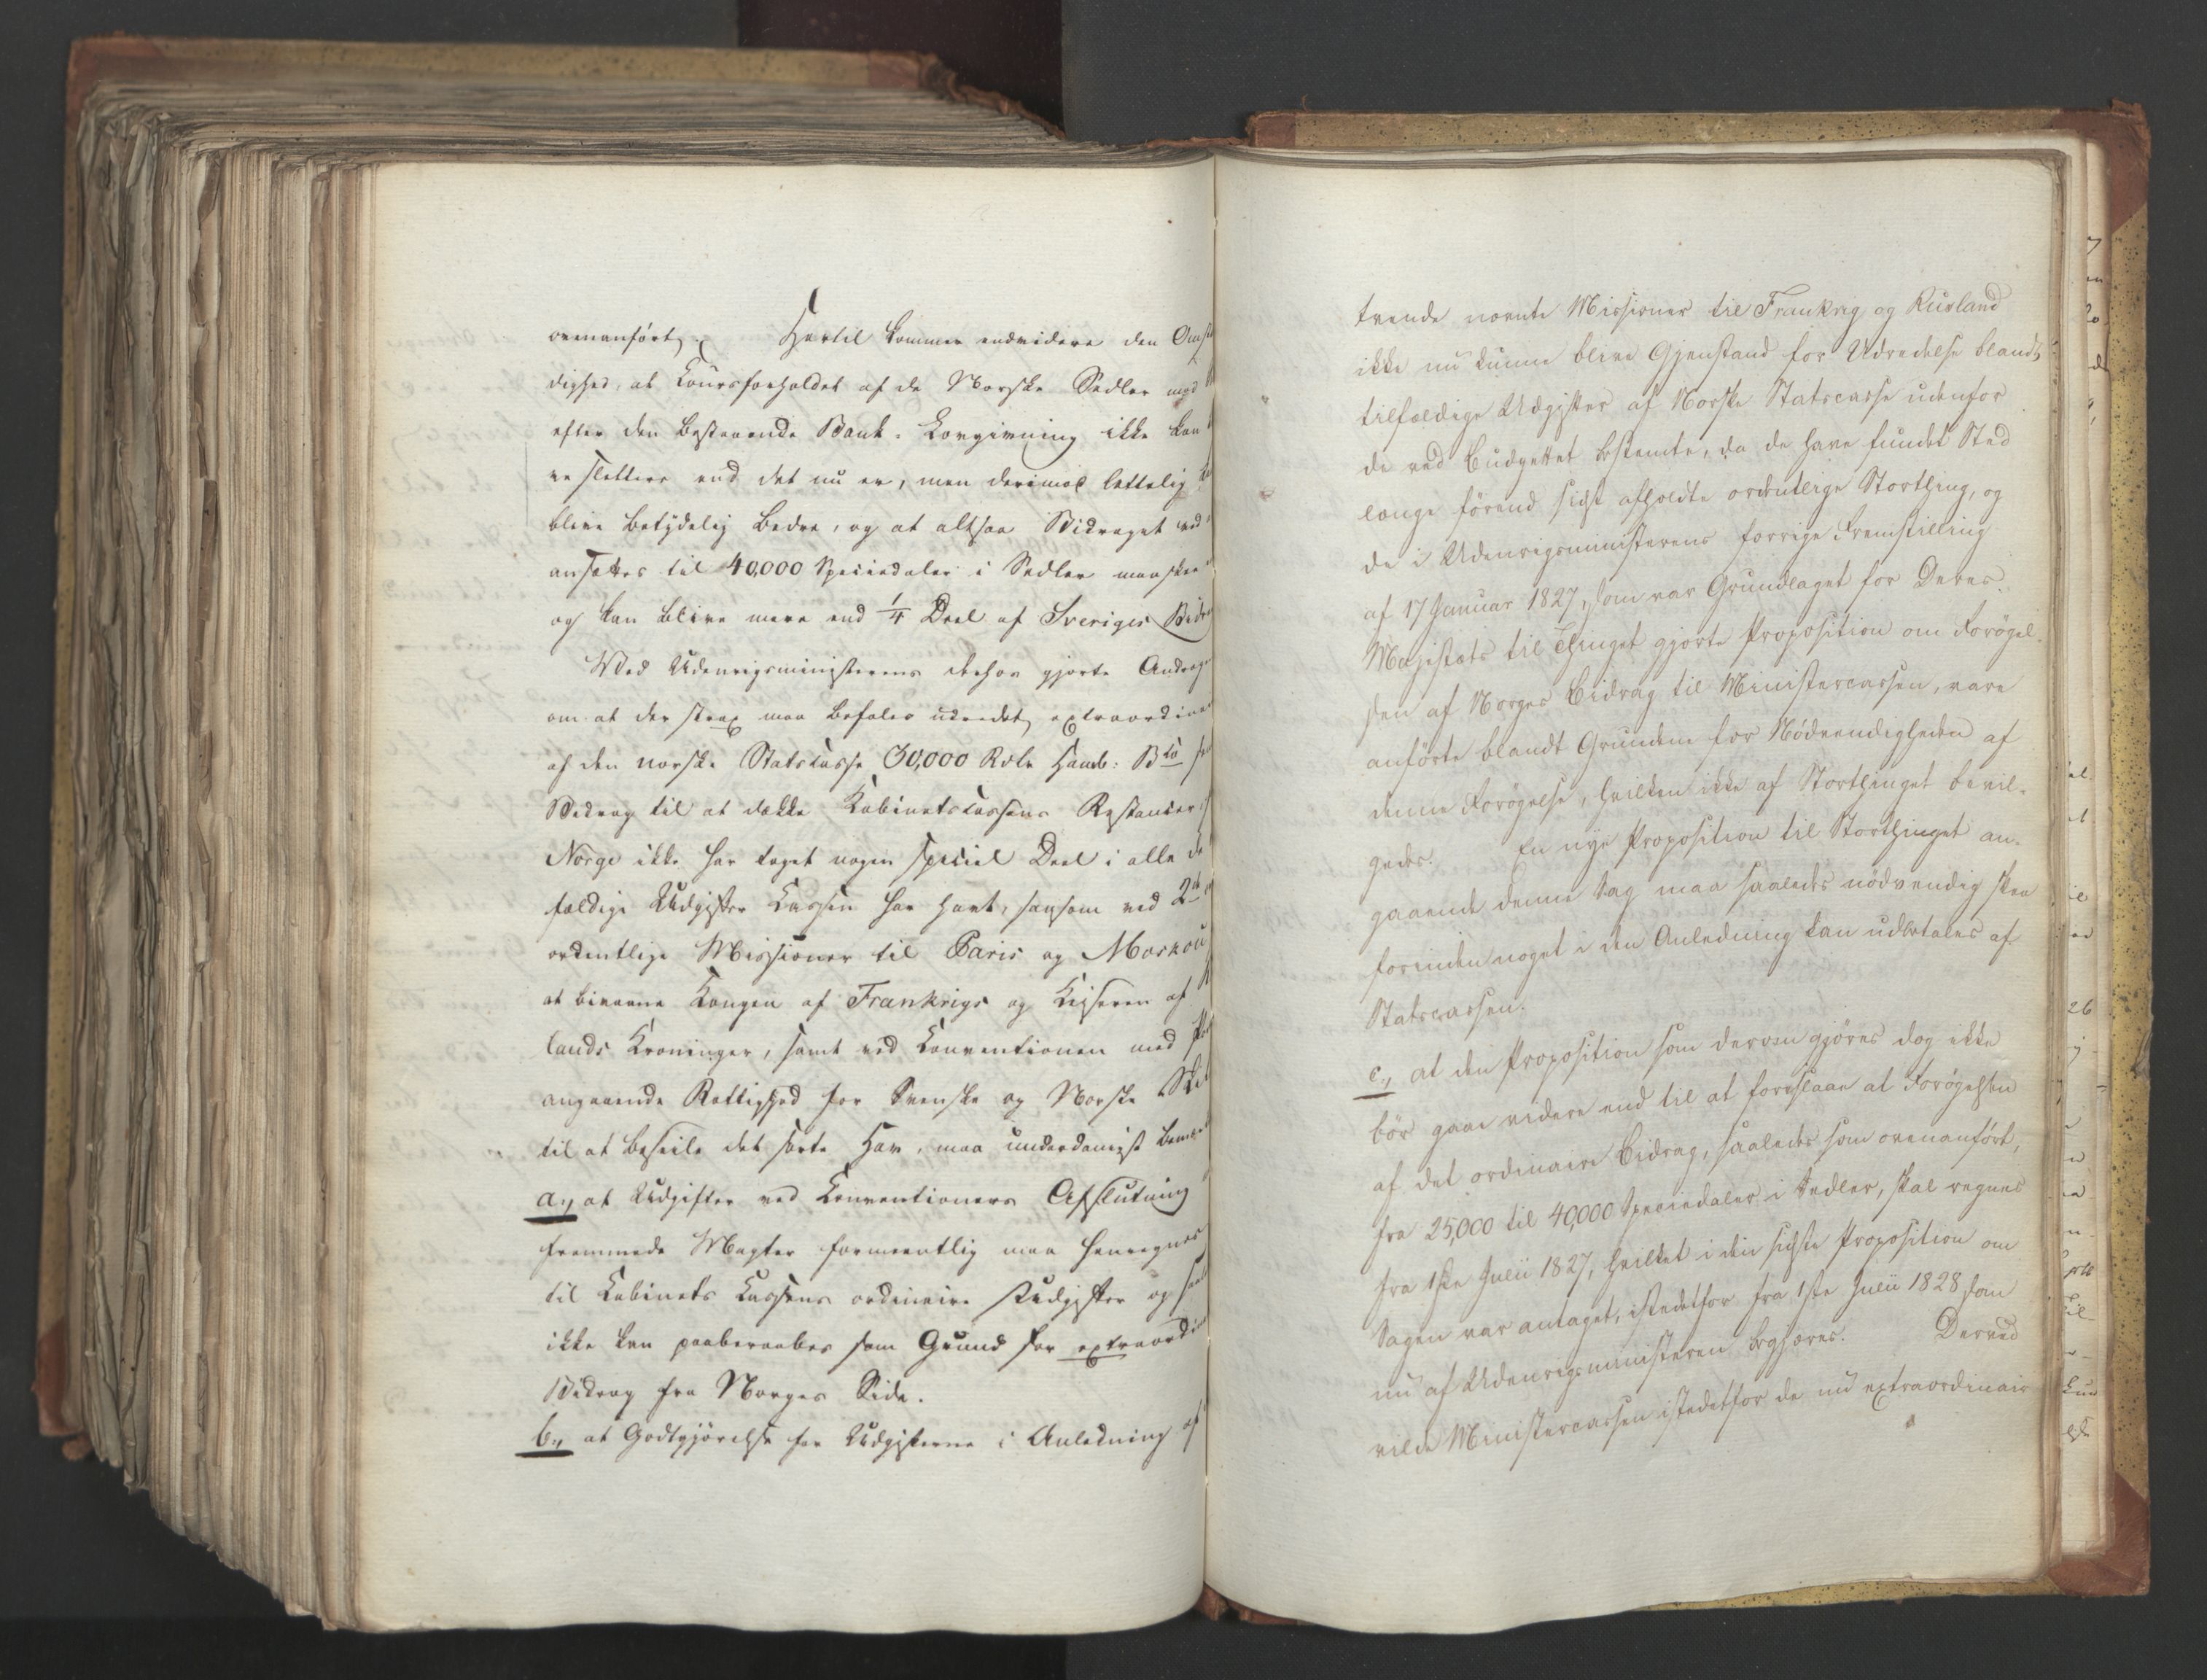 ovenanført. Hertil kommer endvidere den Omst
dighed, at Coursforholdet af de Norske Sedler med
efter den bestaaende Bank-Lovgivning ikke kan
ve slettere end det nu er, men derimod lettelig
blive betydelig bedre, og at altsaa Bidraget ved
ansættes til 40,000 Speciedaler i Sedler maaskee
og kan blive mere end 1/4 Deel af Sveriges Bidr
Ved Udenrigsministerens derhos gjorte Andrag
om at der strax maa befales udredet, extraordinai
af den norske Statscasse 30,000 Rdlr Hamb: Bco so
Bidrag til at dække Kabinetscassens Restancer,
Norge ikke har taget nogen speciel Deel i alle de
fældige Udgifter Cassen har havt, saasom ved 2de
ordentlige Missioner til Paris og Moskou
at bivaane Kongen af Frankrigs og Keiseren af
lands Kroninger, samt ved Conventionen med Po
angaaende Rettighed for Svenske og Norske Ski
til at beseile det sorte Hav, maa underdanigst bemær
a., at Udgifter ved Conventioners Afslutning
fremmede Magter formeentlig maa henregnes
til Cabinets Cassens ordinaire Udgifter og saal
ikke kan paaberaabes som Grund for extraordi
Bidrag fra Norges Side.
b., at Godtgjørelse for Udgifterne i Anledning af
tvende nævnte Missioner til Frankrig og Rusland
ikke nu kunne blive Gjenstand for Udredelse blandt
tilfældige Udgifter af Norske Statscasse udenfor
de ved Budgettet bestemte, da de have fundet Sted
længe førend sidst afholdte ordentlige Storthing, og
de i Udenrigsministerens forrige Fremstilling
af 17 Januar 1827, som var Grundlaget for Deres
Majestæts til Thinget gjorte Proposition om Forøgel-
sen af Norges Bidrag til Ministercassen, vare
anførte blandt Grundene for Nødvendigheden af
denne Forøgelse, hvilken ikke af Storthinget bevil-
gedes. En nye Proposition til Storthinget an-
gaaende denne Sag maa saaledes nødvendig skee
forinden noget i den Anledning kan udbetales af
Statscassen.
c., at den Proposition som derom gjøres dog ikke
bør gaae videre end til at foreslaae at Forøgelsen
af det ordinaire Bidrag, saaledes som ovenanført,
fra 25,000 til 40,000 Speciedaler i Sedler, skal regnes
fra 1ste Julii 1827, hvilket i den sidste Proposition om
Sagen var antaget, istedetfor fra 1ste Julii 1828 som
nu af Udenrigsministeren begjæres. Derved
vilde Ministercassen istedetfor de nu extraordinair